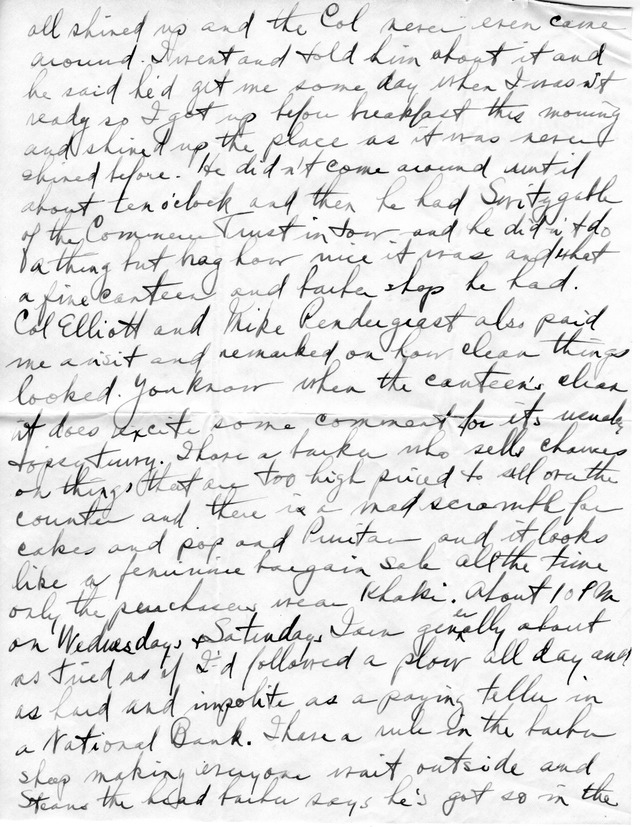 all shined up and the Col never even came
around. I went and told him about it and
he said he'd get me some day when I wasn't
ready so I got up before breakfast this morning
and shined up the place as it was never
shined before. He didn't come around until
about ten o'clock and then he had Switzgable
of the Commerce Trust in tow and he didn't do
a thing but brag how nice it was and what
a fine canteen and barber shop he had.
Col Elliott and Mike Pendergrast also paid
me a visit and remarked on how clean things
looked. You know when the canteen's clean
it does excite some comment for its usually
topsy turvy. I have a barker who sells chances
on things that are too high priced to sell over the
counter and there is a mad scramble for
cakes and pop and Puritan and it looks
like a feminine bargain sale all the time
only the purchasers wear Khaki. About 10 PM
on Wednesdays & Saturdays I am generally about
as tired as if I'd followed a plow all day and
as hard and impolite as a paying teller in
a National Bank. I have a rule in the barber
shop making everyone wait outside and
the head barber says he's got so in the